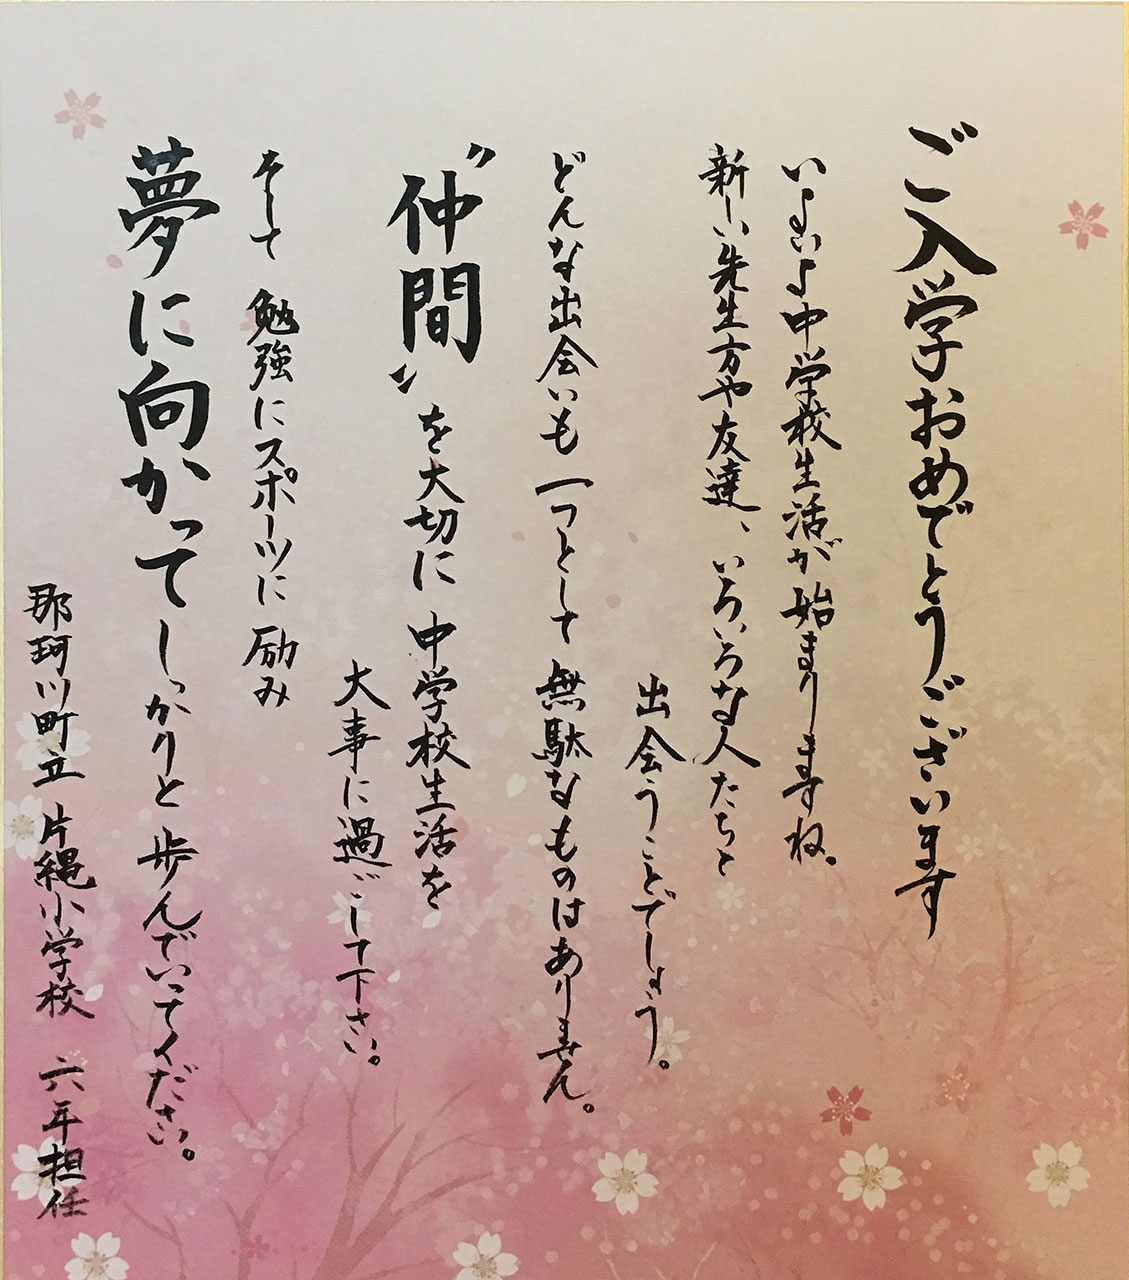 ご入学おめでとうございます
いよいよ中学校生活が始まりますね。
新しい先生方や友達、いろいろな人たちと
出会うことでしょう。
どんな出会いも一つとして無駄なものはありません。
〝仲間〟を大切に中学校生活を
大事に過ごして下さい。
そして 勉強にスポーツに励み
夢に向かってしっかりと歩んでいってください。
那珂川町立 片縄小学校 六年担任